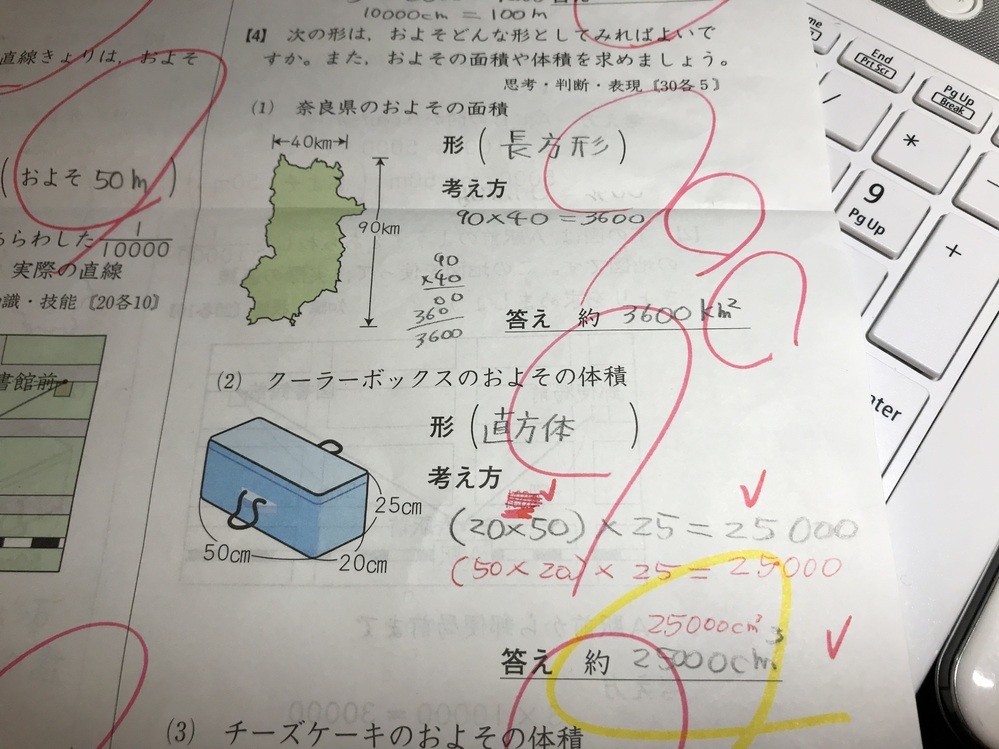 10000cm = 100m
【4】 次の形は，およそどんな形としてみればよいで
すか。また，およその面積や体積を求めましょう。
思考・判断・表現〔30各5〕
直線きょりは，およそ
(およそ 50m)
あらわした 1/10000
実際の直線
知識・技能〔20各10〕
書館前
(1) 奈良県のおよその面積
40km
90km
形 (長方形)
考え方
90×40=3600
90
×40
00
360
3600
答え 約 3600km²
(2) クーラーボックスのおよその体積
形 (直方体)
考え方
25cm
50cm
20cm
(20×50)×25=25000
(50×20)×25=25000
25000cm³
答え 約 25000cm³
(3) チーズケーキのおよその体積
End
Prt Scr
Pg Up
Break
/
*
9
Pg Up
+